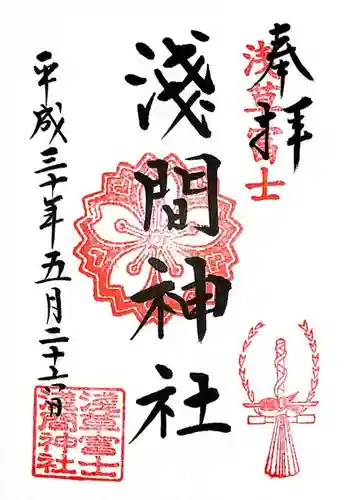 奉拝
浅草富士
淺間神社
平成三十年五月二十六日
浅草富士
浅間神社